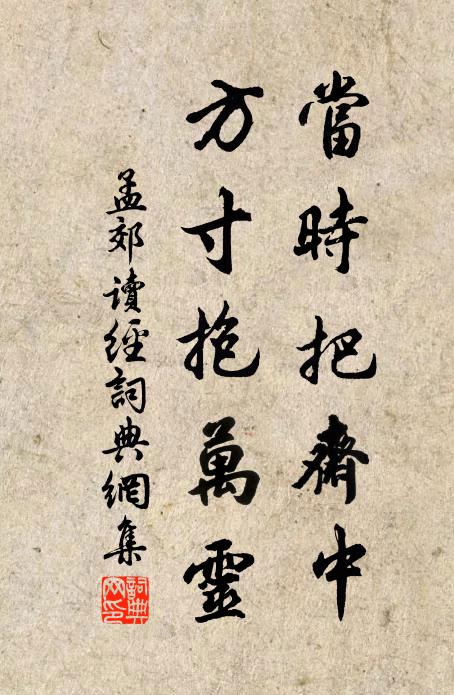 當時把齋中
方寸抱萬靈
孟郊讀經詞典網集
詞典網印